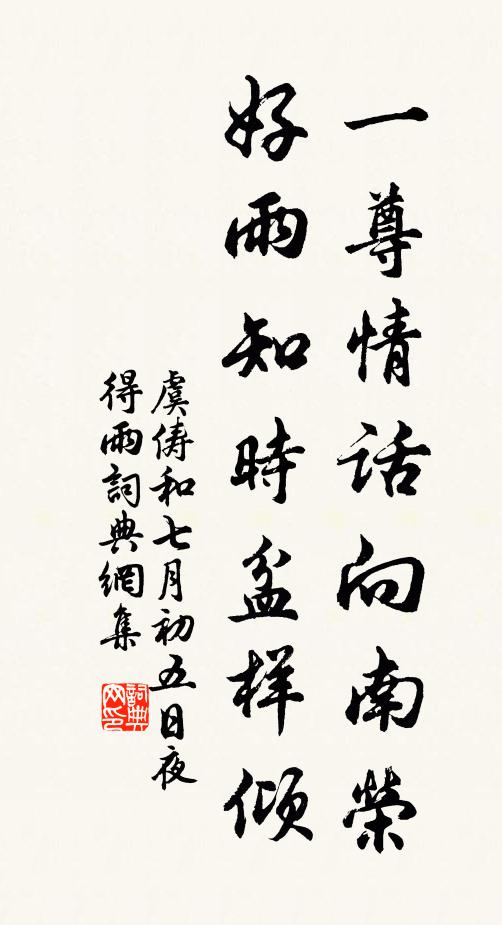 一尊情话向南榮
好雨知時盆样傾
虞儔和七月初五日夜
得雨詞典網集
詞典网印